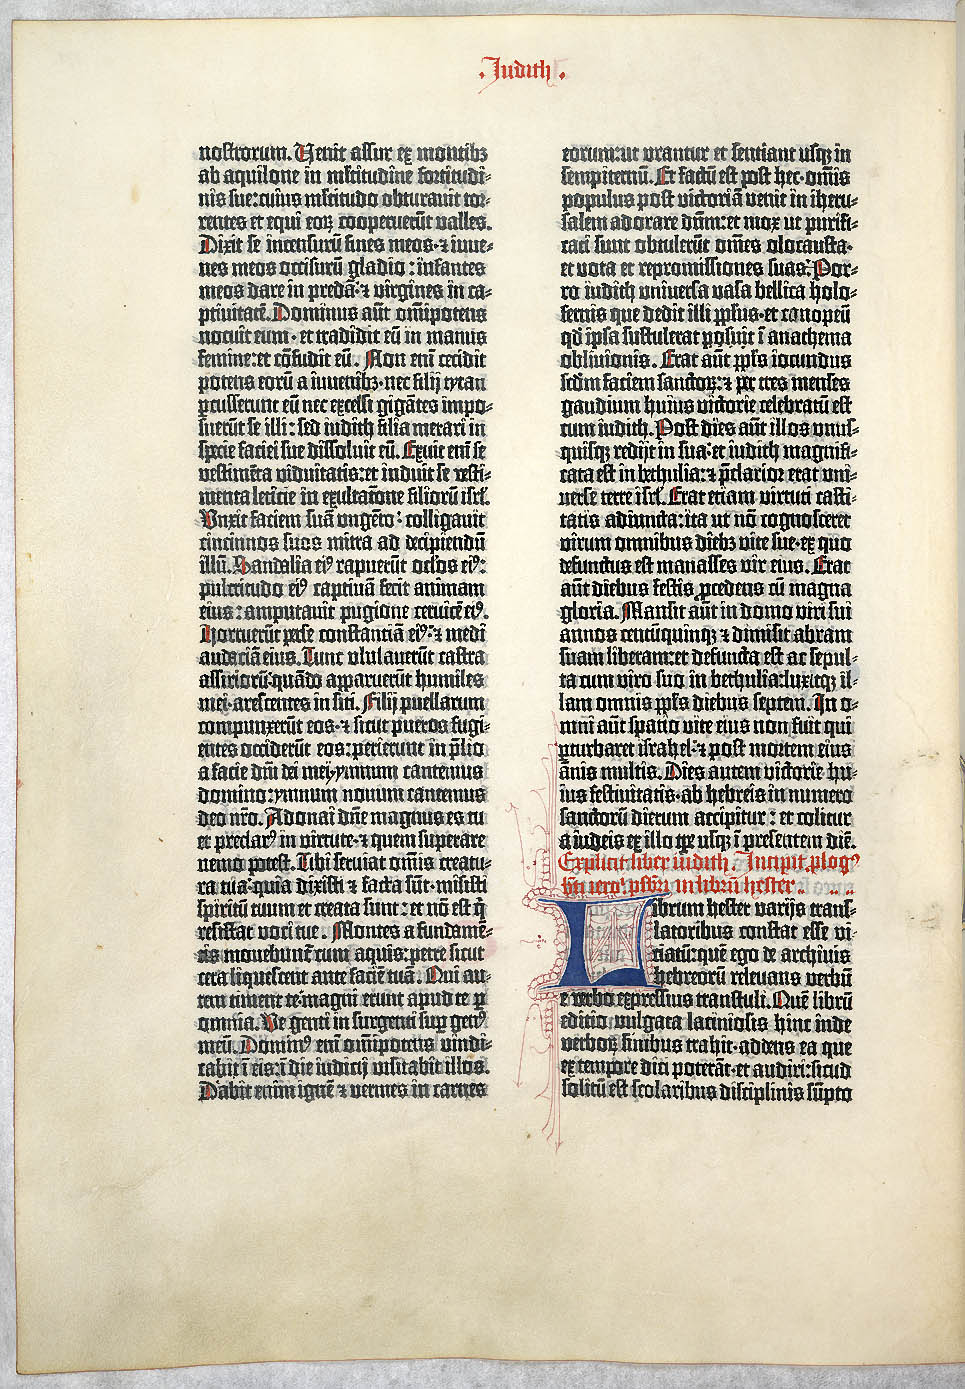 .Judith.
nostrorum. Venit assur ex montibꝫ
ab aquilone in ml̄titudine fortitudi-
nis sue: cuius ml̄titudo obturavit tor-
rentes et equi eoꝝ cooperuerūt valles.
Dixit se incensurū fines meos · ⁊ iuve-
nes meos occisurū gladio : infantes
meos dare in predā: ⁊ virgines in ca-
ptivitatē. Dominus aūt om̄ipotens
nocuit eum · et tradidit eū in manus
femine: et cōfudit eū. Non eni cecidit
potens eorū a iuvenibꝫ · nec filij tytan
ꝑcusserunt eū nec excelsi gigātes impo-
suerūt se illi: sed iudith filia merari in
specie faciei sue dissoluit eū. Exuit eni se
vestimēta viduitatis: et induit se vesti-
menta leticie in exultatōne filiorū isrl̄.
Unxit faciem suā ungēto: colligavit
cincinnos suos mitra ad decipiendū
illū. Sandalia eiꝰ rapuerūt oclōs eiꝰ:
pulcritudo eiꝰ captivā fecit animam
eius: amputavit pugione cervicē eiꝰ.
Horruerūt ꝑse constantiā eiꝰ: ⁊ medi
audaciā eius. Tunc ululaverūt castra
assiriorū: quādo apparuerūt humiles
mei · arescentes in siti. Filij puellarum
compunxerūt eos · ⁊ sicut pueros fugi-
entes occiderūt eos: perierunt in p̄lio
a facie dn̄i dei mei · ymnum cantemus
domino: ymnum novum cantemus
deo nr̄o. Adonai dn̄e magnus es tu
et preclarꝰ in virtute · ⁊ quem superare
nemo potest. Tibi serviat om̄is creatu-
ra tua: quia dixisti ⁊ facta sūt · misisti
spiritū tuum et creata sunt: et nō est q̄
resistat voci tue. Montes a fundamē-
tis movebunt cum aquis: petre sicut
cera liquescent ante faciē tuā. Qui au-
tem timent te · magni erunt apud te ꝑ
omnia. Ve genti insurgenti suꝑ genꝰ
meū. Dominꝰ eni om̄ipotens vindi-
cabit ī eis: ī die iudicij visitabit illos.
Dabit enim ignē ⁊ vermes in carnes
eorum: ut urantur et sentiant usqꝫ in
sempiternū. Et factū est post hec · om̄is
populus post victoriā venit in iheru-
salem adorare dn̄m: et mox ut purifi-
cati sunt obtulerūt om̄es olocausta ·
et vota et repromissiones suas. Por-
ro iudith universa vasa bellica holo-
fernis que dedit illi ppl̄us · et canopeū
qd̄ ip̄sa sustulerat posuit ī anathema
oblivionis. Erat aūt ppl̄s iocundus
scdm faciem sanctoꝝ: ⁊ per tres menses
gaudium huius victorie celebratū est
cum iudith. Post dies aūt illos unus-
quisqꝫ redijt in sua: et iudith magnifi-
cata est in bethulia: ⁊ p̄clarior erat uni-
verse terre isrl̄. Erat etiam virtuti casti-
tatis adiuncta: ita ut nō cognosceret
virum omnibus diebꝫ vite sue · ex quo
defunctus est manasses vir eius. Erat
aūt diebus festis ꝓcedens cū magna
gloria. Mansit aūt in domo viri sui
annos centūquinqꝫ ⁊ dimisit abram
suam liberam: et defuncta est ac sepul-
ta cum viro suo in bethulia: luxitqꝫ il-
lam omnis ppl̄s diebus septem. In o-
mni aūt spatio vite eius non fuit qui
ꝑturbaret israhel: ⁊ post mortem eius
ānis multis. Dies autem victorie hu-
ius festivitatis · ab hebreis in numero
sanctorū dierum accipitur: et colitur
a iudeis ex illo tꝑe usqꝫ ī presentem diē.
Explicit liber iudith. Incipit plogꝰ
bt̄i iero. pſbri in librū hester.
Librum hester varijs trans-
latoribus constat esse vi-
ciatū: quē ego de archivis
hebreorū relevans verbū
e verbo expressius transtuli. Quē librū
editio vulgata laciniosis hinc inde
verboꝝ finibus trahit · addens ea que
ex tempore dici poterāt · et audiri: sicud
solitū est scolaribus disciplinis sūpto